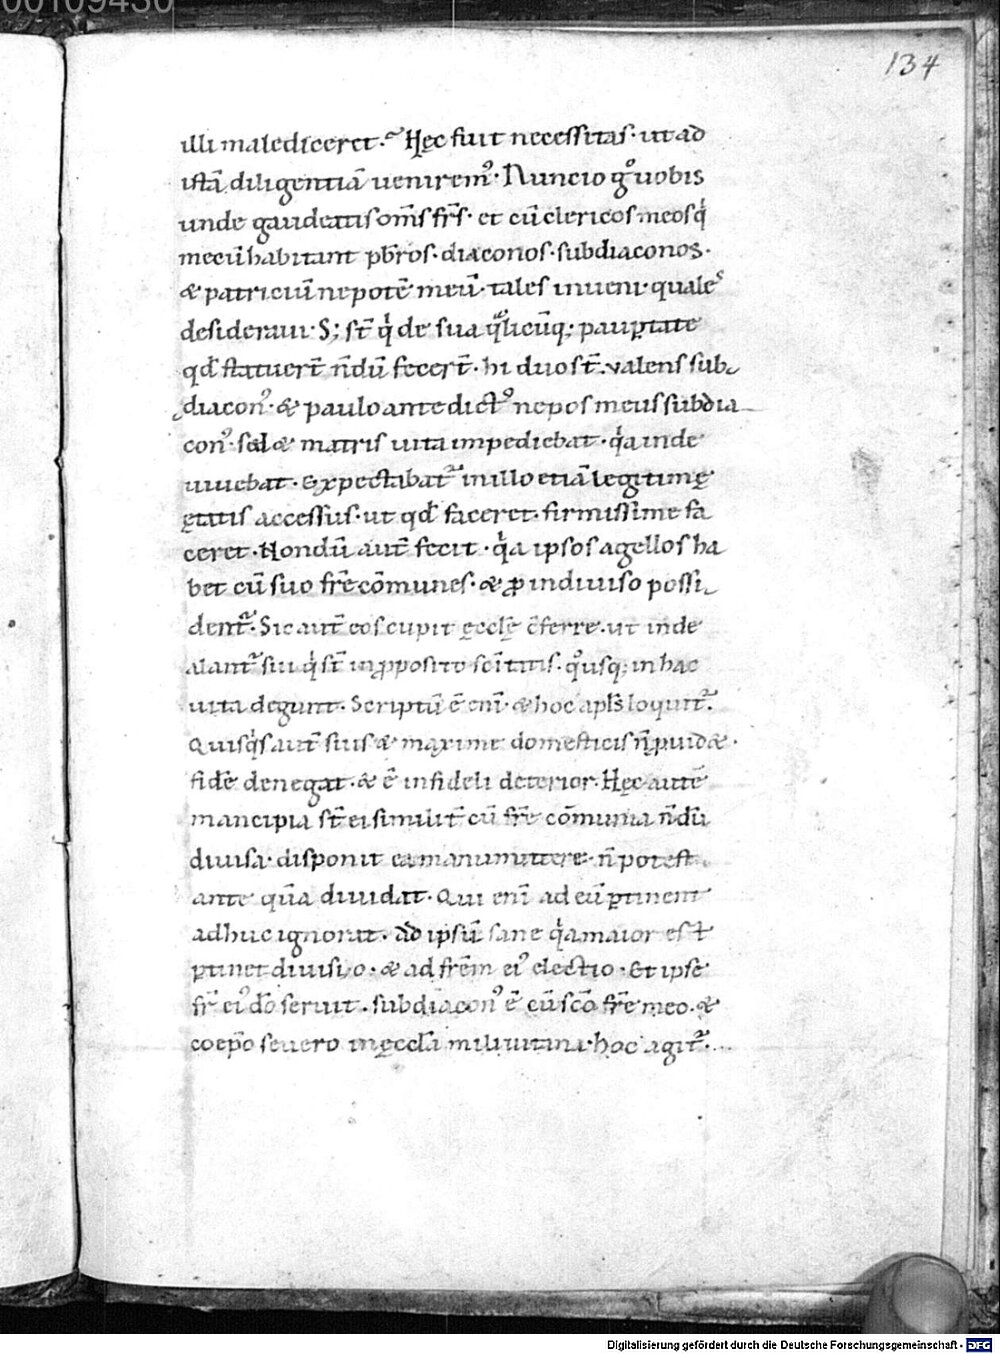 00109430
134
illi malediceret. Hęc fuit necessitas. ut ad
istā diligentiā uenirem᷒. Nuncio gͦ uobis
unde gaudeatis om̄s frs̄. et cū clericos meos qͥ
mecū habitant pb̄ros. diaconos. subdiaconos.
& patriciū nepotē meū. tales inueni quales
desideraui. S; st̄ qͥ de sua qͣlicūq; paup̱tate
qd̄ statuert̄ n̄dū fecert̄. hi duo st̄. valens sub
diacon᷒. & paulo ante dict᷒ nepos meus subdia
con᷒. sed & matris uita impediebat. qͥa inde
uiuebat. Expectabat᷑ in illo etiā legitimę
ętatis accessus. ut qd̄ faceret. firmissime fa
ceret. Nondū aut̄ fecit. qͥa ipsos agellos ha
bet cū suo fr̄e cōmunes. & ꝓ indiuiso possi
dent᷑. Sic aut̄ eos cupit ęcclę c̄ferre. ut inde
alant᷑ sui qͥ st̄ in ꝓposito sc̄itatis. qͦusq; in hac
uita degunt. Scriptū ē eni᷒. & hoc apl̄s loquit᷑.
Quisqͥs aut̄ suis & maxime domesticis n̄ ꝓuidet.
fidē denegat. & ē infideli deterior. Hęc autē
mancipia st̄ ei similit̄ cū fr̄e cōmunia n̄dū
diuisa. disponit ea manumittere. n̄ potest
ante quā diuidat. Qui eni᷒ ad eū p̱tinent
adhuc ignorat. ad ipsū sane qͥa maior est
p̱tinet diuisio. & ad frēm ei᷒ electio. Et ipse
fr̄ ei᷒ dō seruit. subdiacon᷒ ē cū sc̄o fr̄e meo. &
coep̄o seuero in ęccl̄a miliuitana. hoc agit᷑.
Digitalisierung gefördert durch die Deutsche Forschungsgemeinschaft - DFG